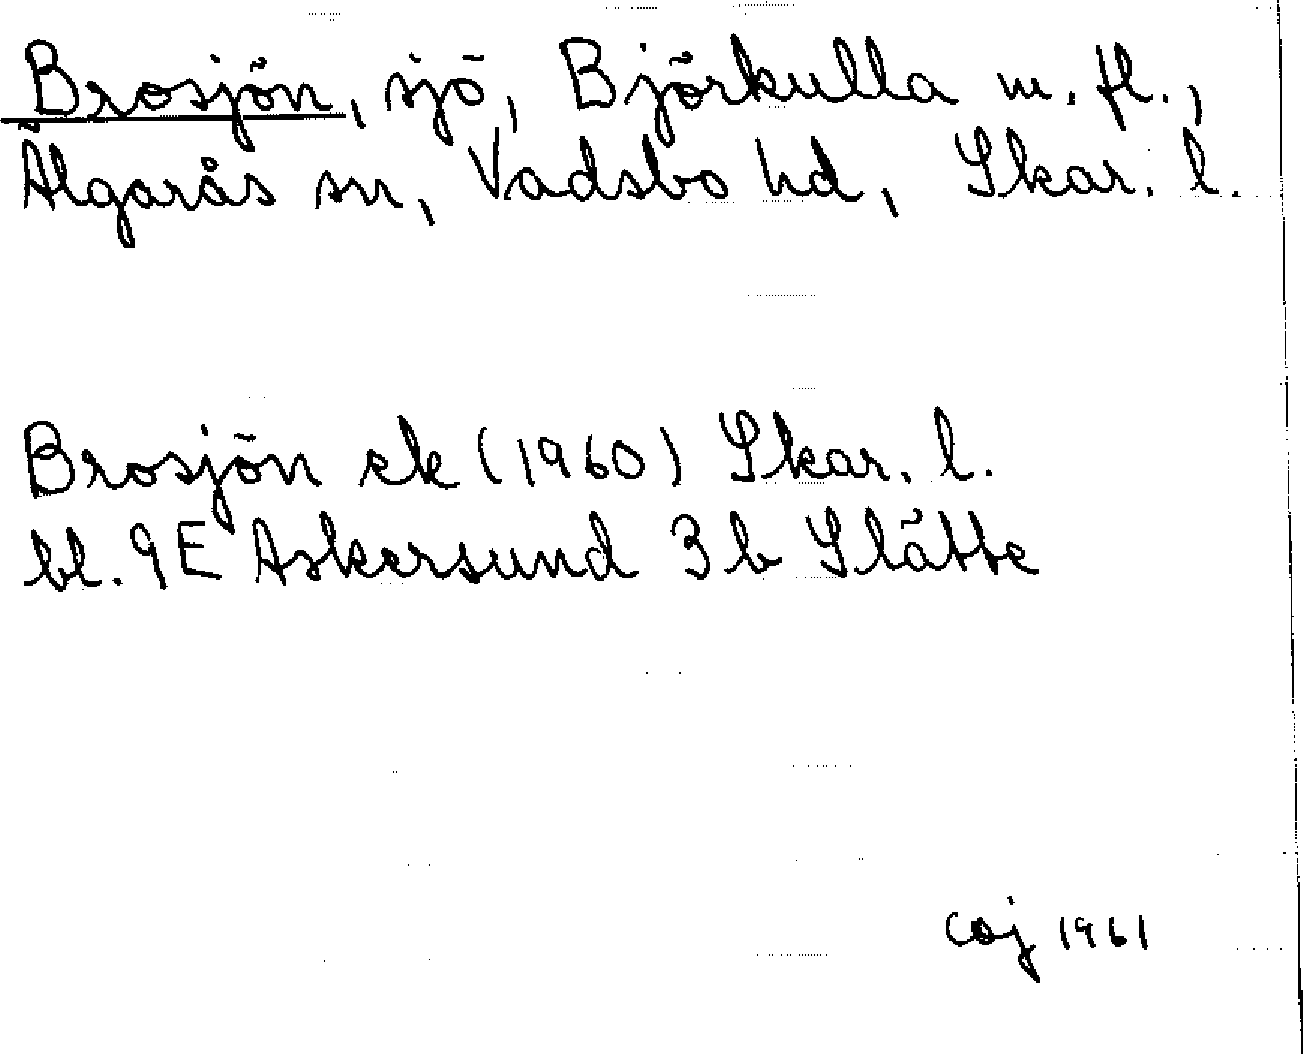 Brosjön, sjö, Björkulla m. fl.,
Älgarås sn, Vadsbo hd, Skar. l.
Brosjön ek (1960) Skar. l.
bl. 9E Askersund 3b Slätte
coj 1961